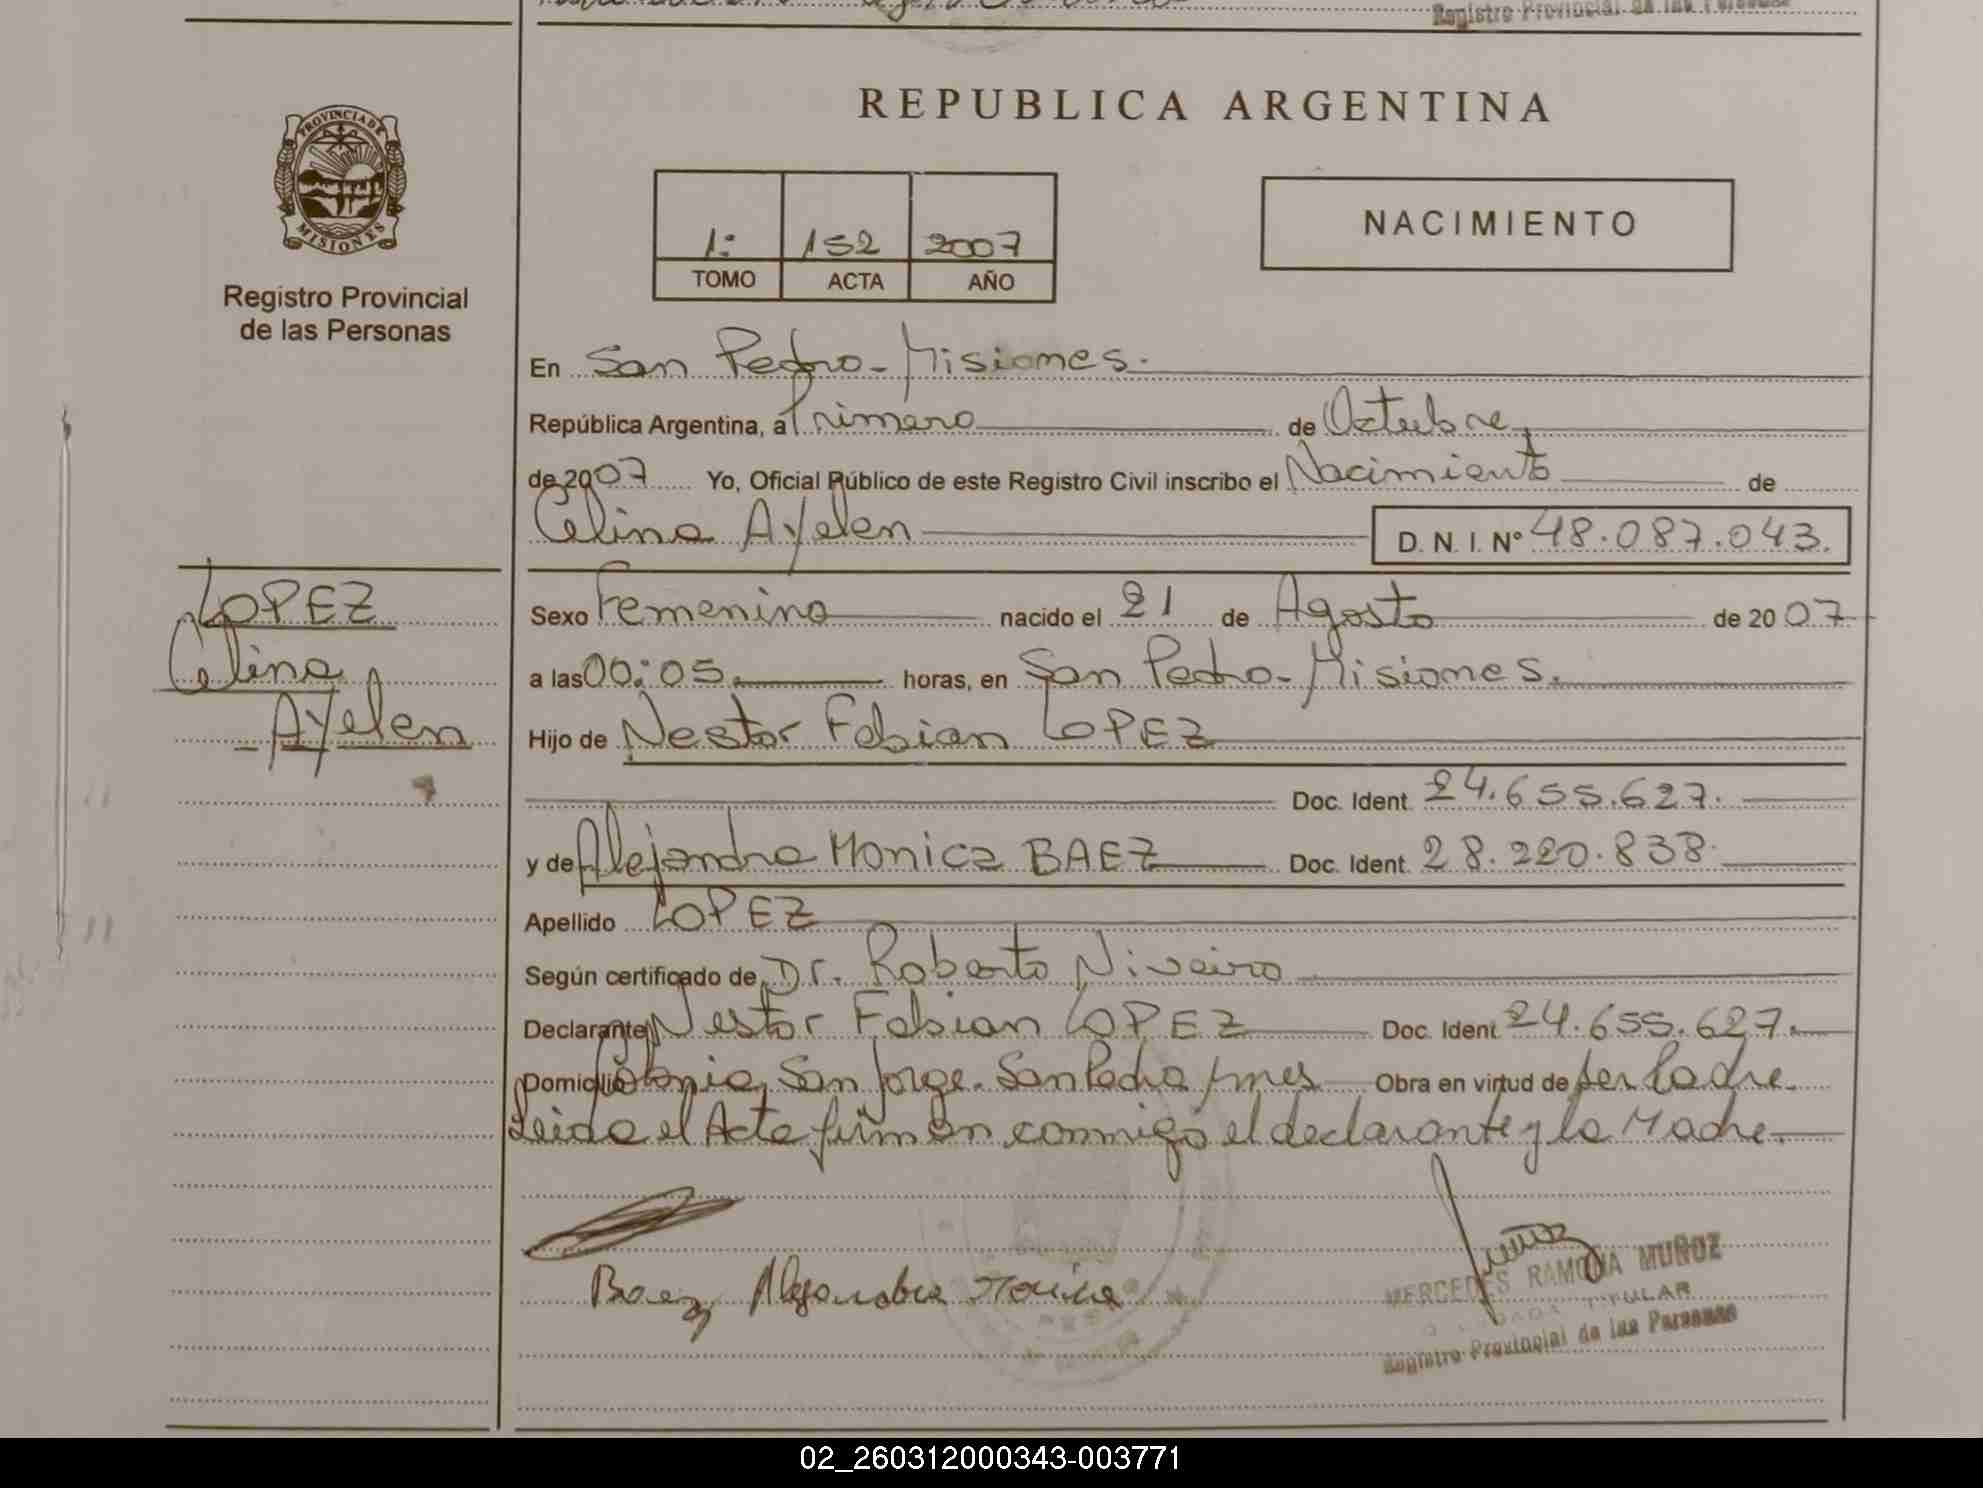 Registro Provincial de las Personas
PROVINCIA DE
MISIONES
Registro Provincial
de las Personas
REPUBLICA ARGENTINA
1: 152 2007
TOMO ACTA AÑO
NACIMIENTO
En San Pedro - Misiones.
República Argentina, a Primero de Octubre,
de 2007 Yo, Oficial Público de este Registro Civil inscribo el Nacimiento de
Celina Ayelen D. N. I. Nº 48.087.043.
LOPEZ
Celina
Ayelen
Sexo Femenino nacido el 21 de Agosto de 2007
a las 00:05. horas, en San Pedro - Misiones.
Hijo de Nestor Fabian LOPEZ
Doc. Ident. 24.655.627.
y de Alejandra Monica BAEZ Doc. Ident. 28.220.838.
Apellido LOPEZ
Según certificado de Dr. Roberto Niveiro
Declarante Nestor Fabian LOPEZ Doc. Ident. 24.655.627.
Domicilio Colonia San Jorge. San Pedro Mnes Obra en virtud de ser Padre.
Leida el Acta firman conmigo el declarante y la Madre.
Baez Alejandra Monica
MERCEDES RAMONA MUÑOZ
TITULAR
Registro Provincial de las Personas
02_260312000343-003771